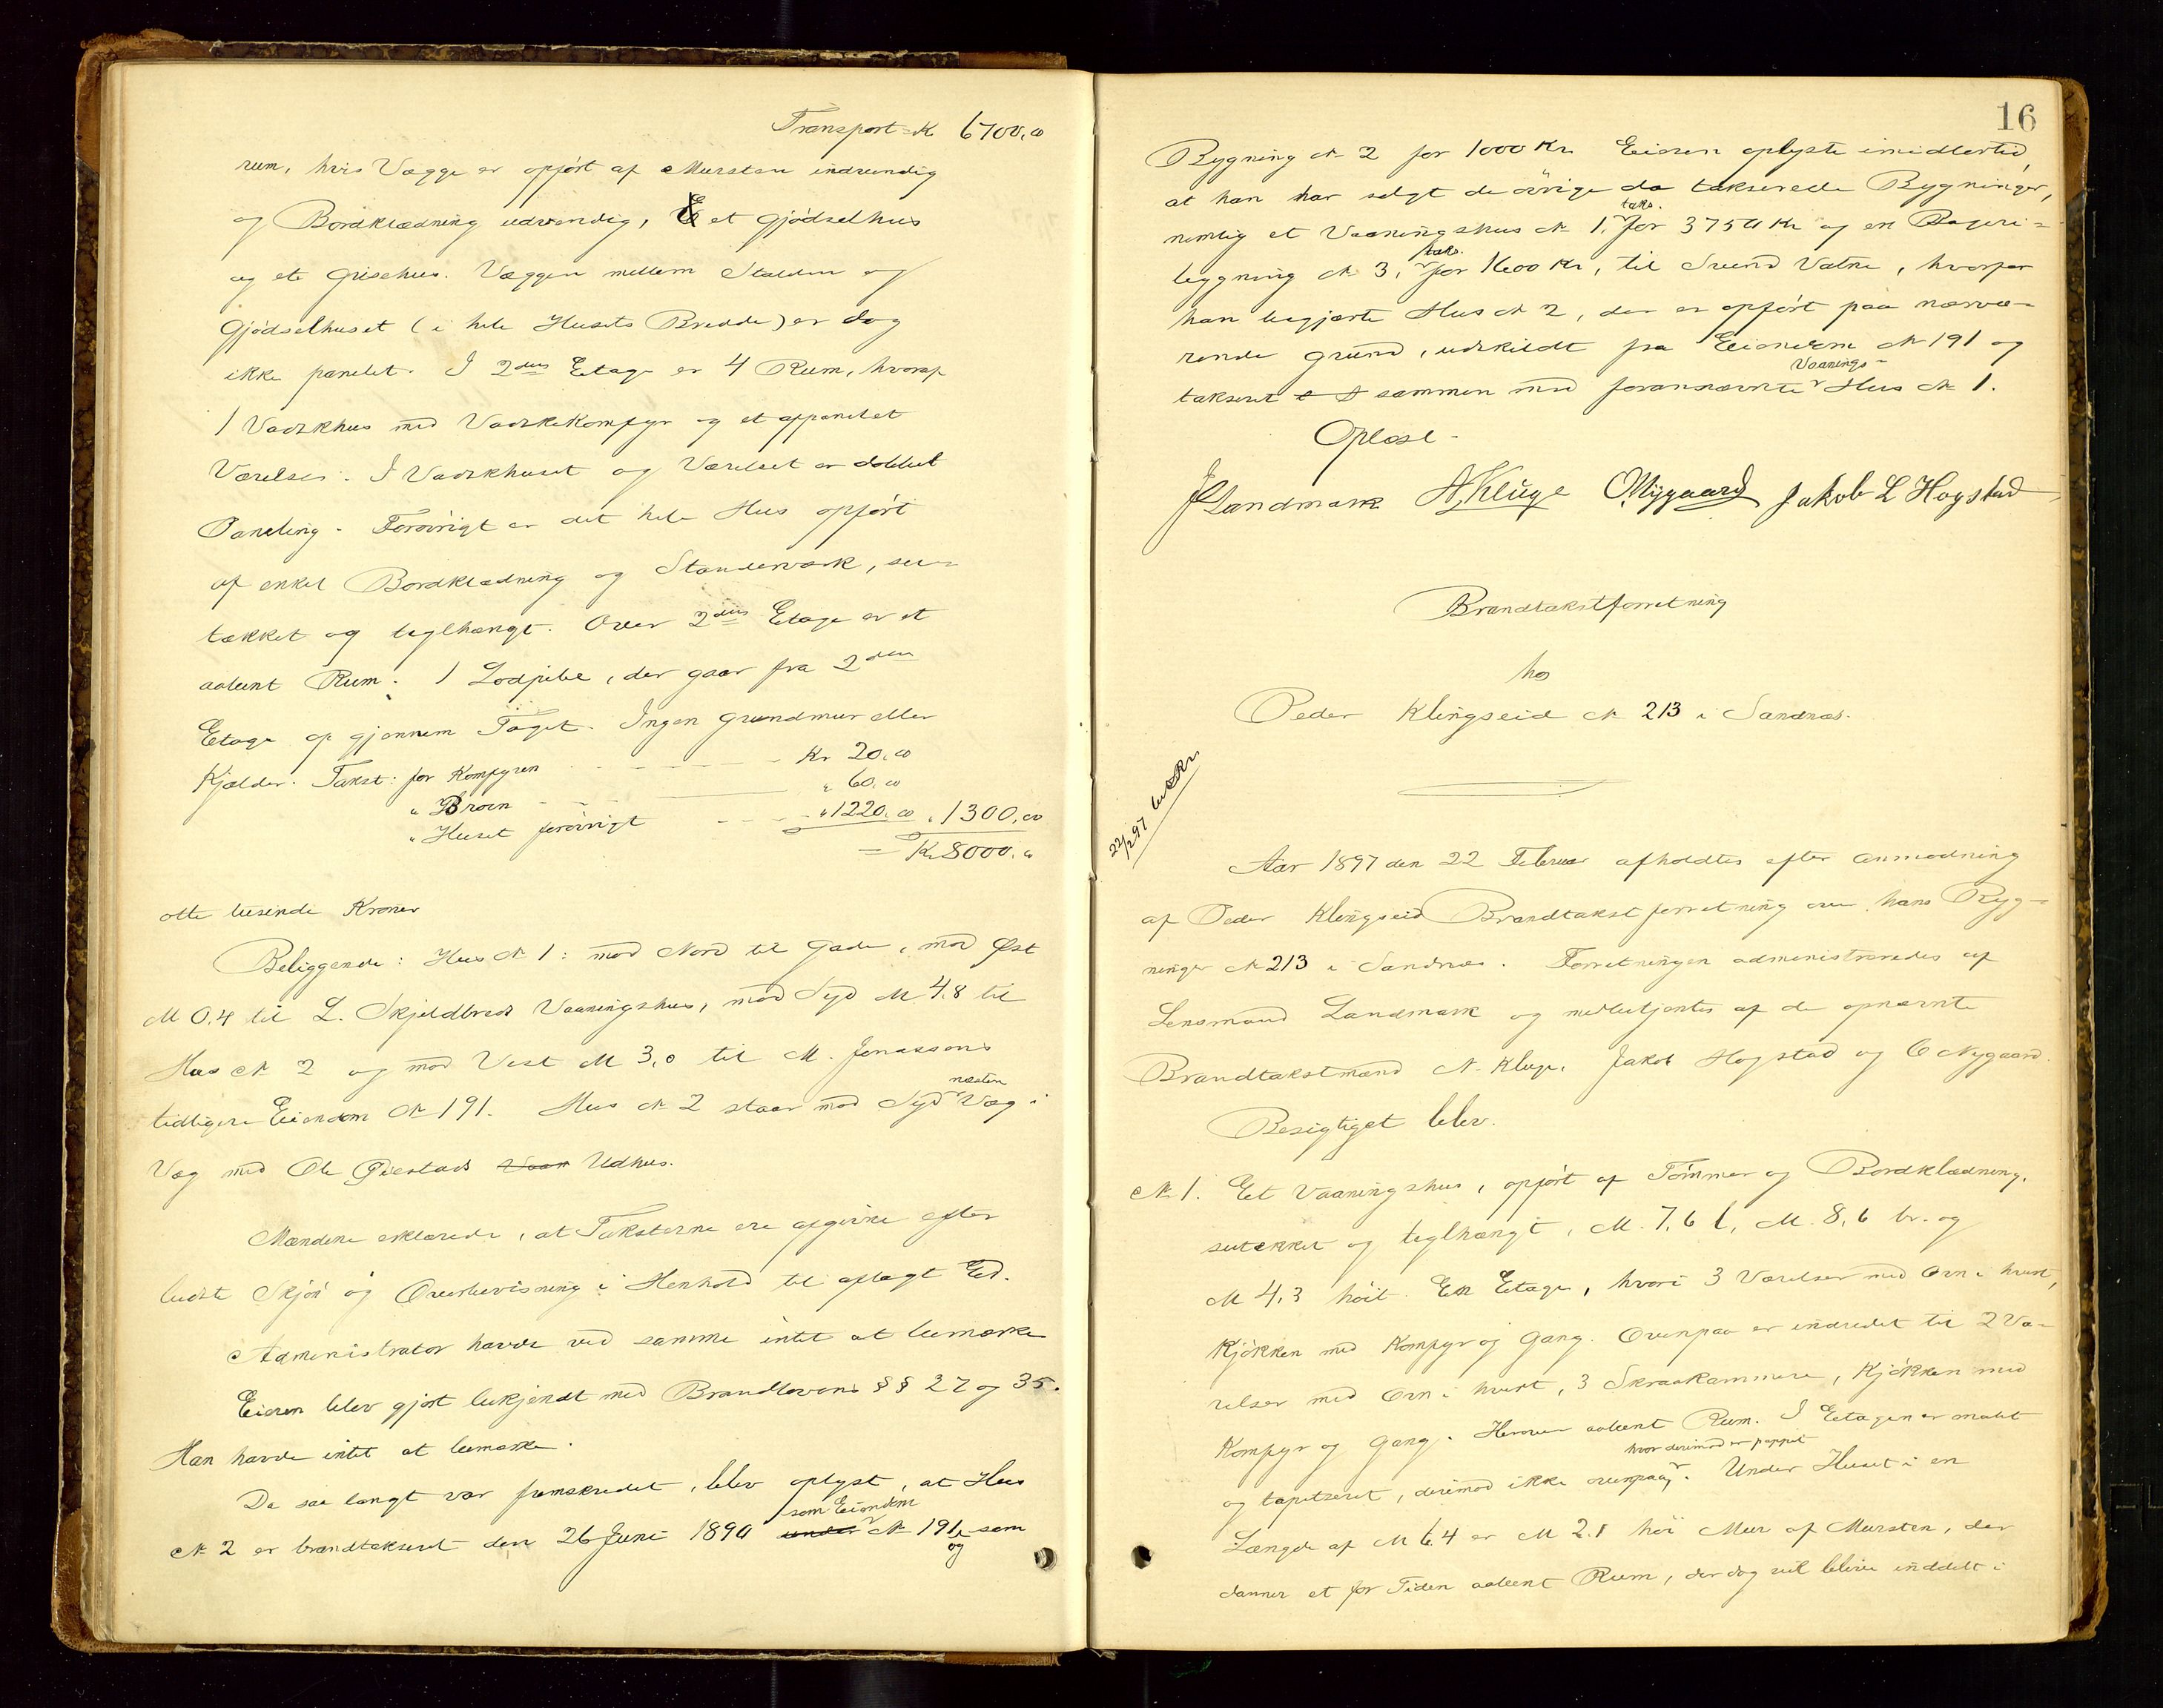 Transport Kr 6700,00
rum, hvis Vægge er opført af Mursten indvendig
og Bordklædning udvendig, et Gjødselhus
og et Grisehus. Væggen mellem Stalden og
Gjødselhuset (i hele Husets Bredde) er dog
ikke panelet. I 2den Etage er 4 Rum, hvoraf
1 Vadskhus med Vadskekomfyr og et afpanelet
Værelse. I Vadskhuset og Værelset er dobbelt
Paneling. Forøvrigt er det hele Hus opført
af enkel Bordklædning og Standerværk, su-
tækket og teglhængt. Over 2den Etage er et
aabent Rum. 1 Lodpibe, der gaar fra 2den
Etage op gjennem Taget. Ingen Grundmur eller
Kjælder. Takst: for Komfyren Kr 20,00
" Broen " 60,00
" Huset forøvrigt " 1220,00 " 1300,00
= Kr 8000,00
otte tusinde Kroner
Beliggende: Hus № 1: mod Nord til Gade, mod Øst
M 0,4 til L. Skjeldbreds Vaaningshus, mod Syd M 4,8 til
Hus № 2 og mod Vest M 3,0 til M. Jonassons
tidligere Eiendom № 191. Hus № 2 staar mod Syd næsten Væg i
Væg med Ole Udhus.
Mændene erklærede, at Taksterne ere afgivne efter
bedste Skjøn og Overbevisning i Henhold til aflagt Ed.
Administrator havde ved samme intet at bemærke
Eieren blev gjort bekjendt med Brandlovens §§ 27 og 35.
Han havde intet at bemærke.
Da saa langt var fremskredet, blev oplyst, at Hus
№ 2 er brandtakseret den 26 Juni 1890 som Eiendom № 191, og som
16
Bygning № 2 for 1000 Kr. Eieren oplyste imidlertid,
at han har solgt de øvrige da takserede Bygninger,
nemlig et Vaaningshus № 1, taks. for 3750 Kr og en Bageri-
bygning № 3, taks. for 1600 Kr, til Svend Vatne, hvorfor
han begjærte Hus № 2, der er opført paa nærvæ-
rende Grund, udskildt fra Eiendom № 191 og
takseret sammen med forannævnte Vaanings- Hus № 1.
Oplæst -
J Landmark N. Kluge O Nygaard Jakob L Hogstad
Brandtakstforretning
hos
Peder Klingseid № 213 i Sandnæs.
22/2 97 beskr
Aar 1897 den 22 Februar afholdtes efter Anmodning
af Peder Klingseid Brandtakstforretning over hans Byg-
ninger № 213 i Sandnæs. Forretningen administreredes af
Lensmand Landmark og medbetjentes af de opnævnte
Brandtakstmænd N. Kluge, Jakob Hogstad og O Nygaard.
Besigtiget blev.
№ 1. Et Vaaningshus, opført af Tømmer og Bordklædning,
sutækket og teglhængt, M. 7,6 l, M. 8,6 br. og
M 4,3 høit. En Etage, hvori 3 Værelser med Ovn i hvert,
Kjøkken med Komfyr og Gang. Ovenpaa er indredet til 2 Væ-
relser med Ovn i hvert, 3 Skraakammere, Kjøkken med
Komfyr og Gang. Herover aabent Rum. I Etagen er malet
og tapetseret, derimod ikke ovenpaa, hvor derimod er pappet. Under Huset i en
Længde af M 6,4 er M 2,1 høi Mur af Mursten, der
danner et for Tiden aabent Rum, der dog vil blive inddelt i